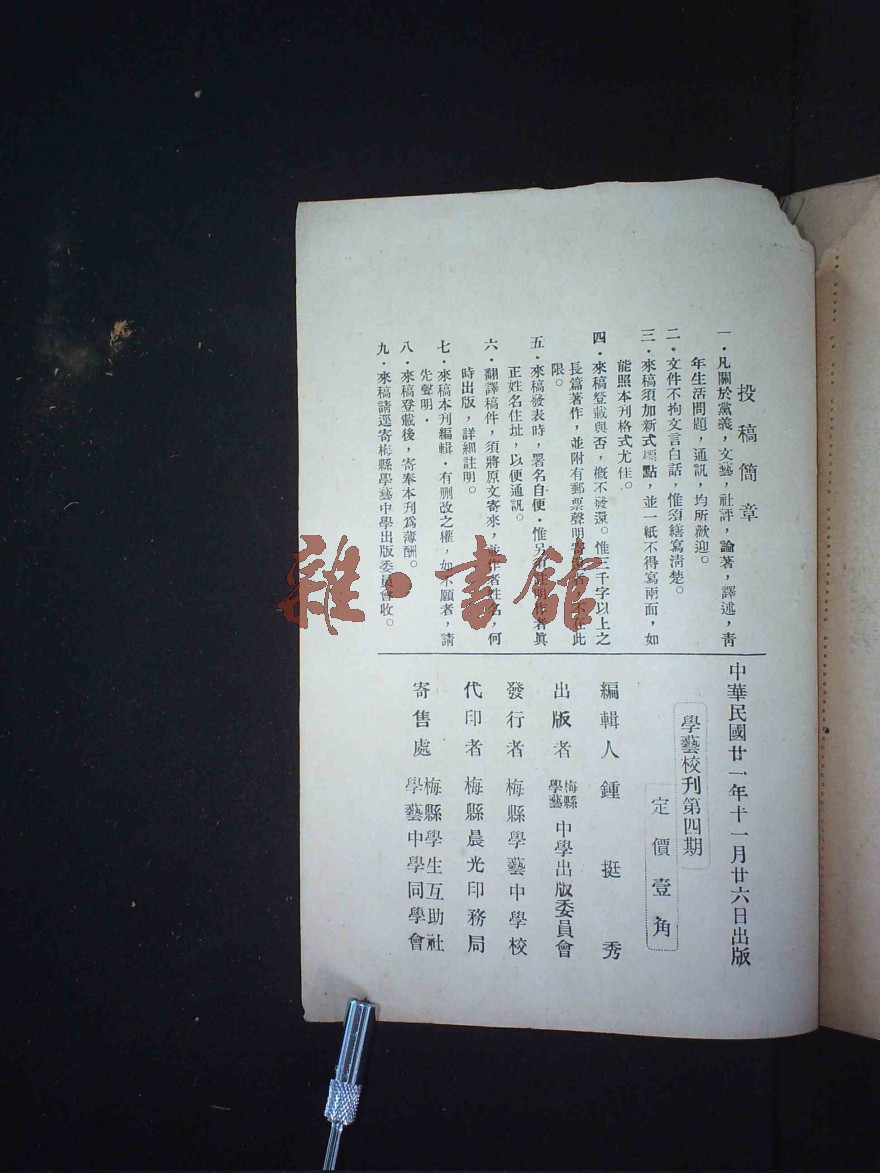 投稿簡章
一・凡關於黨義，文藝，社評，論著，譯述，靑
年生活問題，通訊，均所歡迎。
二・文件不拘文言白話，惟須繕寫淸楚。
三・來稿須加新式標點，並一紙不得寫兩面，如
能照本刊格式尤佳。
四・來稿登載與否，槪不發還。惟三千字以上之
長篇著作，並附有郵票聲明，不在此
限。
五・來稿發表時，署名自便・惟另有註明作者眞
正姓名住址，以便通訊。
六・翻譯稿件，須將原文寄來，並作者姓名，何
時出版，詳細註明。
七・來稿本刊編輯・有删改之權，如不願者，請
先聲明・
八・來稿登載後，寄奉本刊爲薄酬。
九・來稿請逕寄梅縣學藝中學出版委員會收。
中華民國廿一年十一月廿六日出版
學藝校刊第四期
定價壹角
編輯人 鍾挺秀
出版者 梅縣學藝中學出版委員會
發行者 梅縣學藝中學校
代印者 梅縣晨光印務局
寄售處 梅縣學生互助社
學藝中學同學會
雜・書館